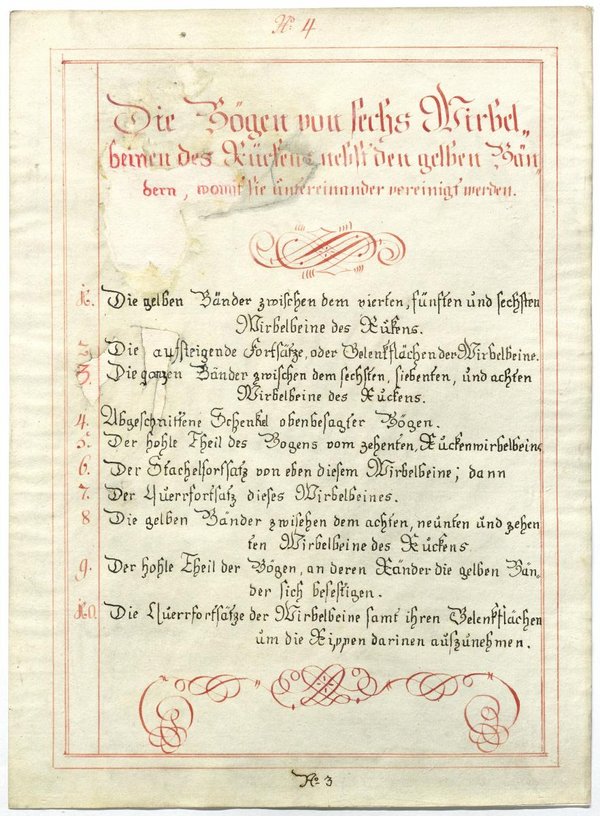 No. 4
Die Bögen von sechs Wirbel„
beinen des Rückens nebst den gelben Bän„
dern, womit sie untereinander vereinigt werden.
1. Die gelben Bänder zwischen dem vierten, fünften und sechsten
Wirbelbeine des Rükens.
2. Die aufsteigende Fortsätze, oder Gelenkflächen der Wirbelbeine.
3. Die ganzen Bänder zwischen dem sechsten, siebenten, und achten
Wirbelbeine des Ruckens.
4. Abgeschnittene Schenkel obenbesagter Bögen.
5. Der hohle Theil des Bogens vom zehenten, Ruckenwirbelbeine
6. Der Stachelfortsatz von eben diesem Wirbelbeine; dann
7. Der Querrfortsatz dieses Wirbelbeines.
8 Die gelben Bänder zwischen dem achten, neünten und zehen
ten Wirbelbeine des Ruckens
9. Der hohle Theil der Bögen, an deren Ränder die gelben Bän„
der sich befestigen.
10. Die Querrfortsätze der Wirbelbeine samt ihren Gelenkflächen
um die Rippen darinen aufzunehmen.
No. 3